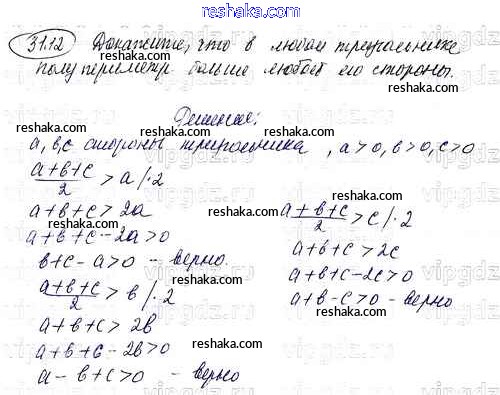 reshaka.com
31.12 Докажите, что в любом треугольнике
полупериметр больше любой его стороны.
reshaka.com
Решение:
reshaka.com
а, в, с стороны треугольника, а>0, в>0, с>0
reshaka.com reshaka.com
a+в+c/2 > a /·2
a+в+c > 2a
reshaka.com
a+в+c-2a>0
в+c-a>0 - верно.
reshaka.com
a+в+c/2 > в /·2
reshaka.com
a+в+c > 2в
a+в+c-2в>0
reshaka.com
a-в+c>0 - верно
a+в+c/2 > c /·2
reshaka.com
a+в+c > 2c
a+в+c-2c>0
a+в-c>0 - верно
reshaka.com
vipgdz.com